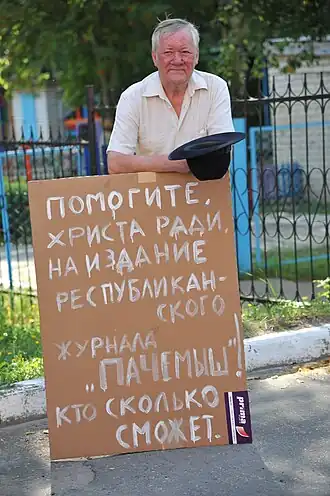 ПОМОГИТЕ,
ХРИСТА РАДИ,
НА ИЗДАНИЕ
РЕСПУБЛИКАН-
СКОГО
ЖУРНАЛА
„ПАЧЕМЫШ"!
КТО СКОЛЬКО
СМОЖЕТ.
prima